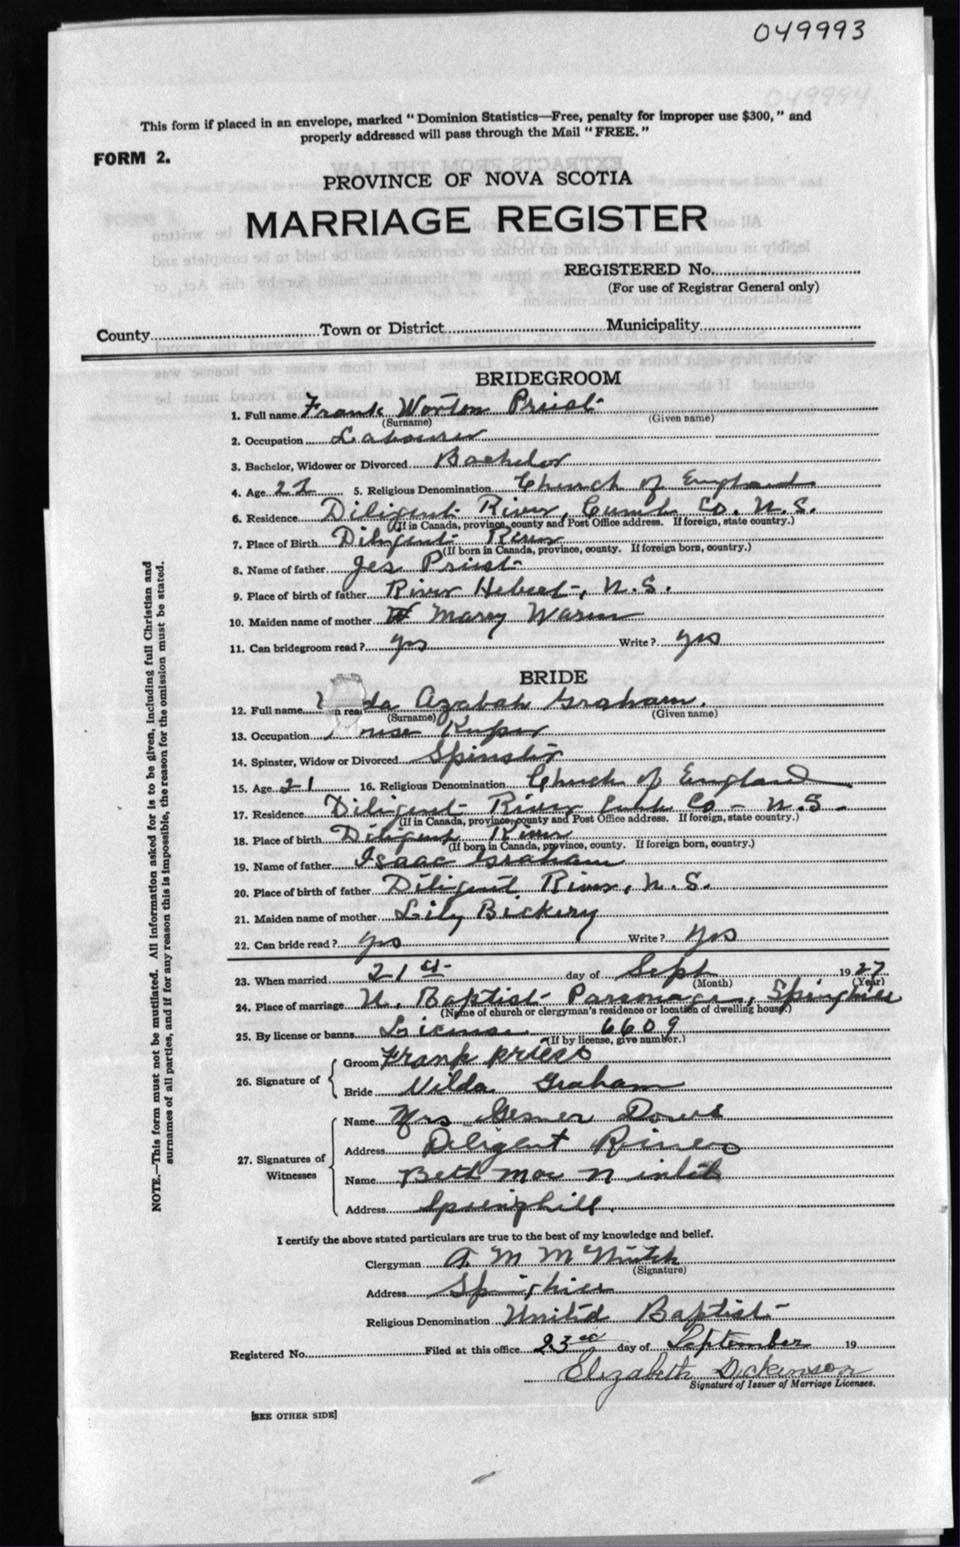 049993
049994
This form if placed in an envelope, marked "Dominion Statistics—Free, penalty for improper use $300," and
properly addressed will pass through the Mail "FREE."
FORM 2.
PROVINCE OF NOVA SCOTIA
MARRIAGE REGISTER
REGISTERED No.
(For use of Registrar General only)
County Town or District Municipality
BRIDEGROOM
1. Full name Frank Worton Priest
(Surname) (Given name)
2. Occupation Labourer
3. Bachelor, Widower or Divorced Bachelor
4. Age 22 5. Religious Denomination Church of England
6. Residence Diligent River, Cumb Co. N.S.
(If in Canada, province, county and Post Office address. If foreign, state country.)
7. Place of Birth Diligent River
(If born in Canada, province, county. If foreign born, country.)
8. Name of father Jes Priest
9. Place of birth of father River Hebert, N.S.
10. Maiden name of mother Marey Warren
11. Can bridegroom read? yes Write? yes
BRIDE
12. Full name da Azabah Graham.
(Surname) (Given name)
13. Occupation House Keeper
14. Spinster, Widow or Divorced Spinster
15. Age 21 16. Religious Denomination Church of England
17. Residence Diligent River Cumb Co - N.S.
(If in Canada, province, county and Post Office address. If foreign, state country.)
18. Place of birth Diligent River
(If born in Canada, province, county. If foreign born, country.)
19. Name of father Isaac Graham
20. Place of birth of father Diligent River, N.S.
21. Maiden name of mother Lily Bickery
22. Can bride read? yes Write? yes
23. When married 21st day of Sept 1927
(Month) (Year)
24. Place of marriage U. Baptist Parsonage, Springhill
(Name of church or clergyman's residence or location of dwelling house.)
25. By license or banns License 6609
(If by license, give number.)
26. Signature of Groom Frank priess
Bride Nilda Graham
27. Signatures of Witnesses
Name Mrs Gesner Dowe
Address Diligent River
Name Beth Mac
Address Springhill.
I certify the above stated particulars are true to the best of my knowledge and belief.
Clergyman A. M. McNutch
(Signature)
Address Springhill
Religious Denomination United Baptist
Registered No. Filed at this office 23rd day of September 19
Elizabeth Dickinson
Signature of Issuer of Marriage Licenses.
[SEE OTHER SIDE]
NOTE.—This form must not be mutilated. All information asked for is to be given, including full Christian and
surnames of all parties, and if for any reason this is impossible, the reason for the omission must be stated.